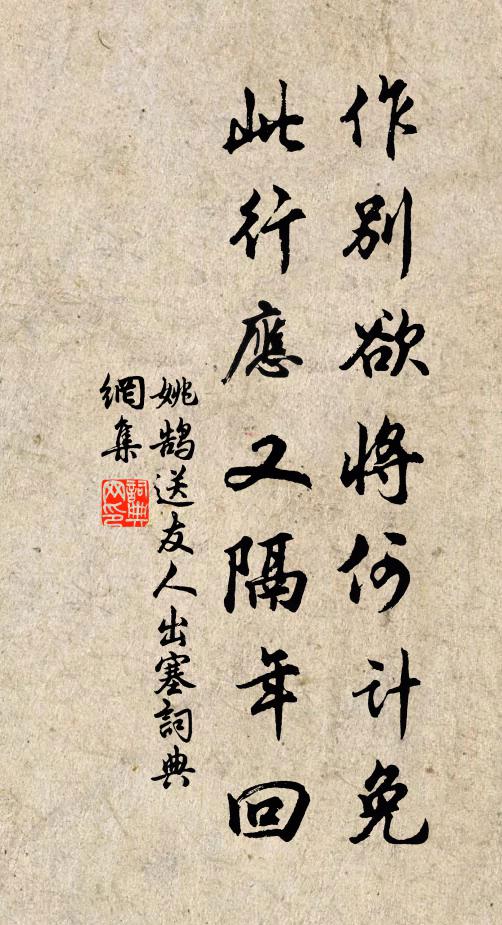 作別欲將何計免
此行應又隔年回
姚鵠送友人出塞詞典
網集
詞典
网印